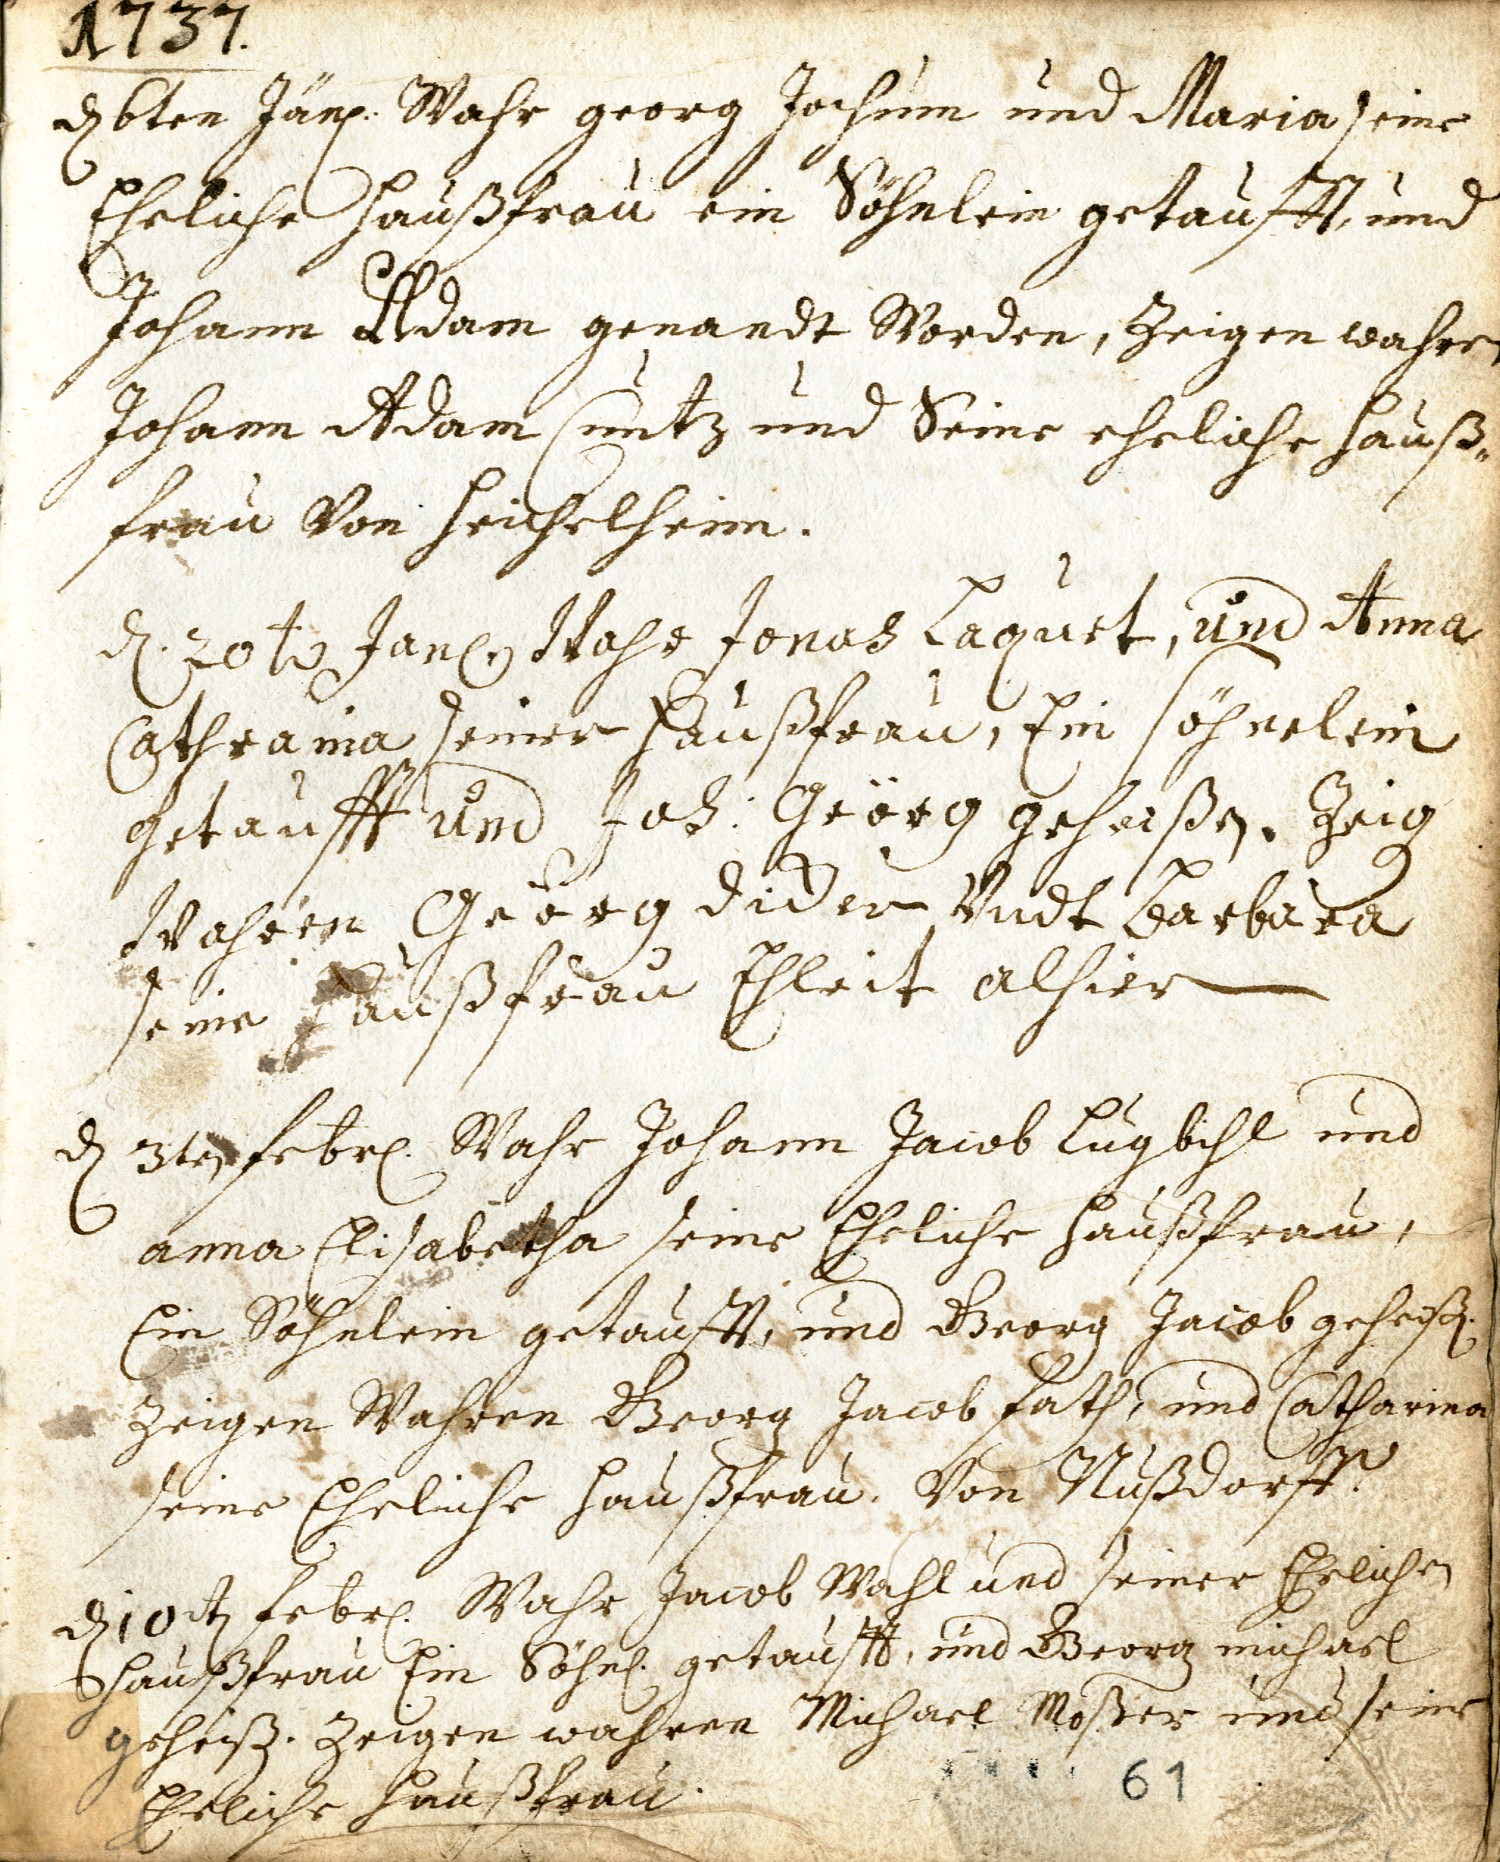 1737.
d 6ten Jän: Wahr georg Jochum und Maria seine
Eheliche Haußfrau ein Söhnlein getaufft, und
Johann Adam genandt Worden, Zeigen wahren
Johann Adam Cuntz und Seine eheliche Hauß-
frau Von Heichelheim.
d. 20te Jan. Wahr Jonas Laquet, und Anna
Cathraina seiner Haußfrau, Ein söhnelein
getaufft und Joh: Geörg geheißen. Zeig
Wahren Geörg didter Undt Barbara
seine Haußfrau Ehleit alhier
d 3ten febr. Wahr Johann Jacob Lugbihl und
anna Elisabetha seine Eheliche Haußfrau,
Ein Söhnlein getaufft, und Georg Jacob geheiß.
Zeigen Wahren Georg Jacob fath, und Catharina
seine Eheliche Haußfrau. Von Nußdorff.
d 10t febr. Wahr Jacob Wahl und seiner Ehelichen
Haußfrau Ein Söhnl. getaufft, und Georg michael
geheiß. Zeigen wahren Michael Moßer und seine
Eheliche Haußfrau.
61